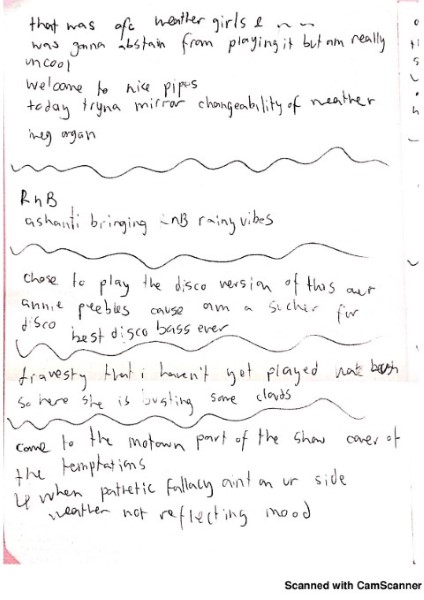 that was ofc weather girls & ~ ~
was gonna abstain from playing it but am really
uncool
welcome to nice pipes
today tryna mirror changeability of weather
meg organ
RnB
ashanti bringing rnB rainy vibes
chose to play the disco version of this over
annie peebles cause am a sucker for
disco
best disco bass ever
travesty that i haven't yet played kate bush
so here she is busting some clouds
come to the motown part of the show cover of
the temptations
↳ when pathetic fallacy aint on ur side
weather not reflecting mood
Scanned with CamScanner